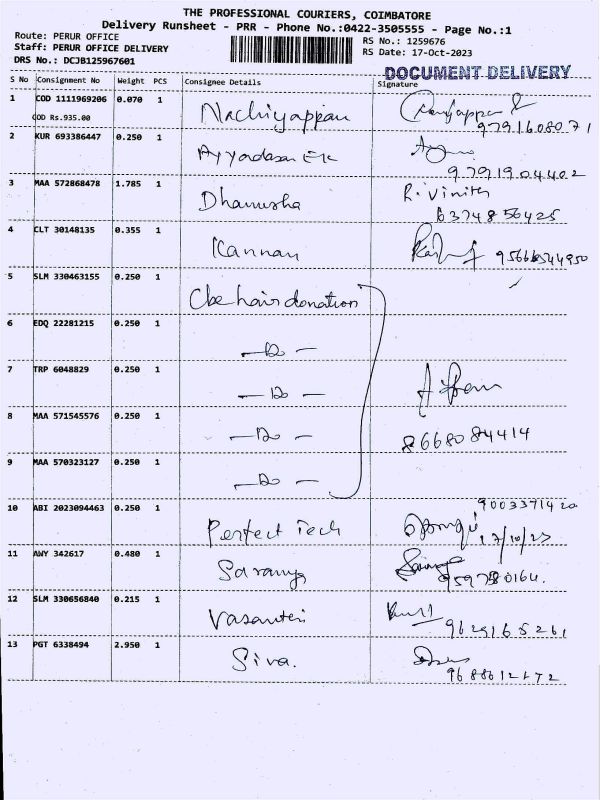 THE PROFESSIONAL COURIERS, COIMBATORE
Delivery Runsheet - PRR - Phone No.:0422-3505555 - Page No.:1
Route: PERUR OFFICE
Staff: PERUR OFFICE DELIVERY
DRS No.: DCJB125967601
RS No.: 1259676
RS Date: 17-Oct-2023
DOCUMENT DELIVERY
S No Consignment No Weight PCS Consignee Details Signature
1 COD 1111969206 0.070 1 Nachiyappan
COD Rs.935.00
9791608071
2 KUR 693386447 0.250 1
9791904402
3 MAA 572868478 1.785 1 Dhanusha R. Vinith
6374856425
4 CLT 30148135 0.355 1 Kannan
5 SLM 330463155 0.250 1 Cbe hair donation
6 EDQ 22281215 0.250 1 -Do-
7 TRP 6048829 0.250 1 -Do-
8 MAA 571545576 0.250 1 -Do-
8668084414
9 MAA 570323127 0.250 1 -Do-
9003371420
10 ABI 2023094463 0.250 1 Perfect Tech
17/10/23
11 AWY 342617 0.480 1 Saranya
12 SLM 330656840 0.215 1 Vasanteri
9629165261
13 PGT 6338494 2.950 1 Siva.